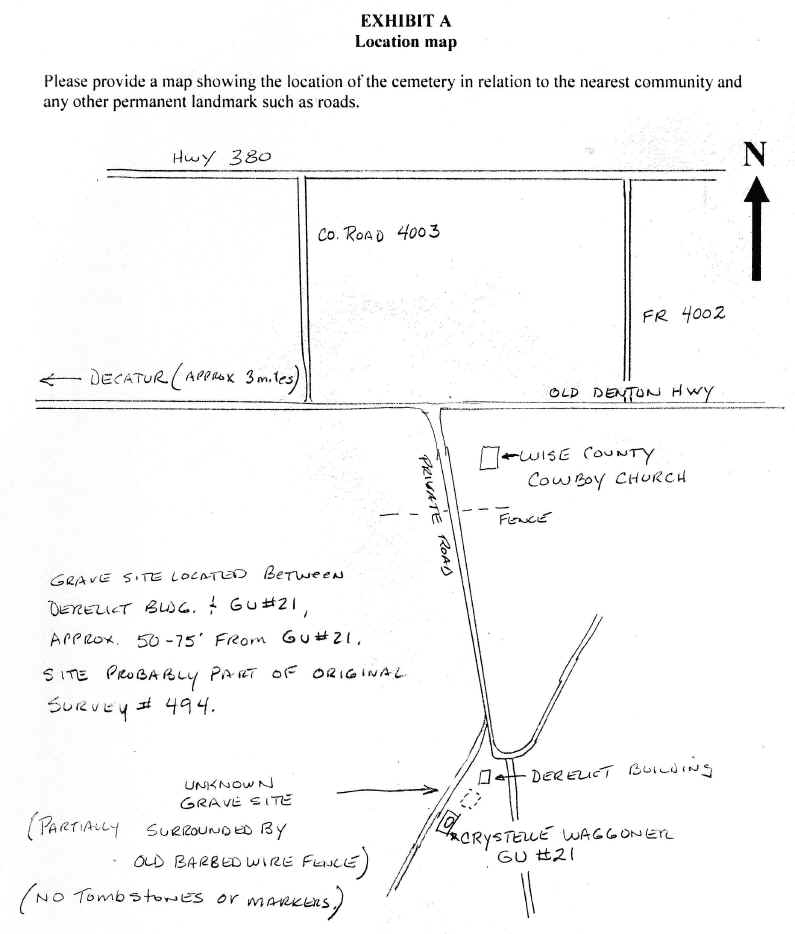 EXHIBIT A
Location map
Please provide a map showing the location of the cemetery in relation to the nearest community and
any other permanent landmark such as roads.
N
HWY 380
CO. ROAD 4003
FR 4002
← DECATUR (APPROX 3 miles)
OLD DENTON HWY
WISE COUNTY
COWBOY CHURCH
PRIVATE ROAD
FENCE
GRAVE SITE LOCATED BETWEEN
DERELICT BLDG. & GU#21,
APPROX. 50-75' FROM GU#21.
SITE PROBABLY PART OF ORIGINAL
SURVEY # 494.
DERELICT BUILDING
UNKNOWN
GRAVE SITE
(PARTIALLY SURROUNDED BY
OLD BARBED WIRE FENCE)
(NO TOMBSTONES OR MARKERS.)
CRYSTELLE WAGGONER
GU #21